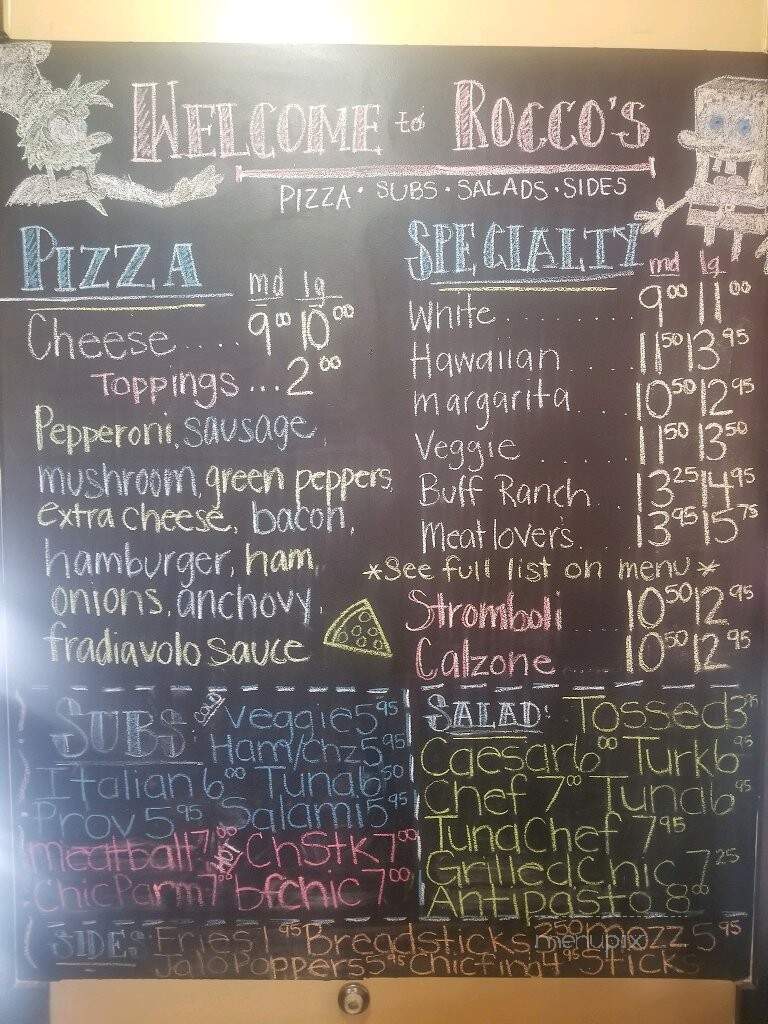 WELCOME to ROCCO'S
PIZZA · SUBS · SALADS · SIDES
PIZZA
md lg
Cheese..... 9⁰⁰ 10⁰⁰
Toppings ...2⁰⁰
Pepperoni, sausage,
mushroom, green peppers,
extra cheese, bacon,
hamburger, ham,
onions, anchovy,
fradiavolo sauce
SPECIALTY
md lg
White ........ 9⁰⁰ 11⁰⁰
Hawaiian .... 11⁵⁰ 13⁹⁵
margarita .... 10⁵⁰ 12⁹⁵
Veggie ...... 11⁵⁰ 13⁵⁰
Buff Ranch .. 13²⁵ 14⁹⁵
Meatlover's.... 13⁹⁵ 15⁷⁵
*See full list on menu*
Stromboli .... 10⁵⁰ 12⁹⁵
Calzone ..... 10⁵⁰ 12⁹⁵
SUBS: COLD veggie 5⁹⁵
Ham/chz 5⁹⁵
Italian 6⁰⁰ Tuna 6⁵⁰
Prov 5⁹⁵ Salami 5⁹⁵
meatball 7 HOT ChStk 7⁰⁰
ChicParm 7 bfchic 7⁰⁰
SALAD: Tossed 3
Caesar 6⁰⁰ Turk 6⁹⁵
Chef 7⁰⁰ Tuna 6⁹⁵
Tuna Chef 7⁹⁵
Grilled Chic 7²⁵
Antipasto 8⁰⁰
SIDES: Fries 1⁹⁵ Breadsticks 2⁵⁰ mozz 5⁹⁵
Jala Poppers 5⁹⁵ Chicfing 4⁹⁵ Sticks
menupix